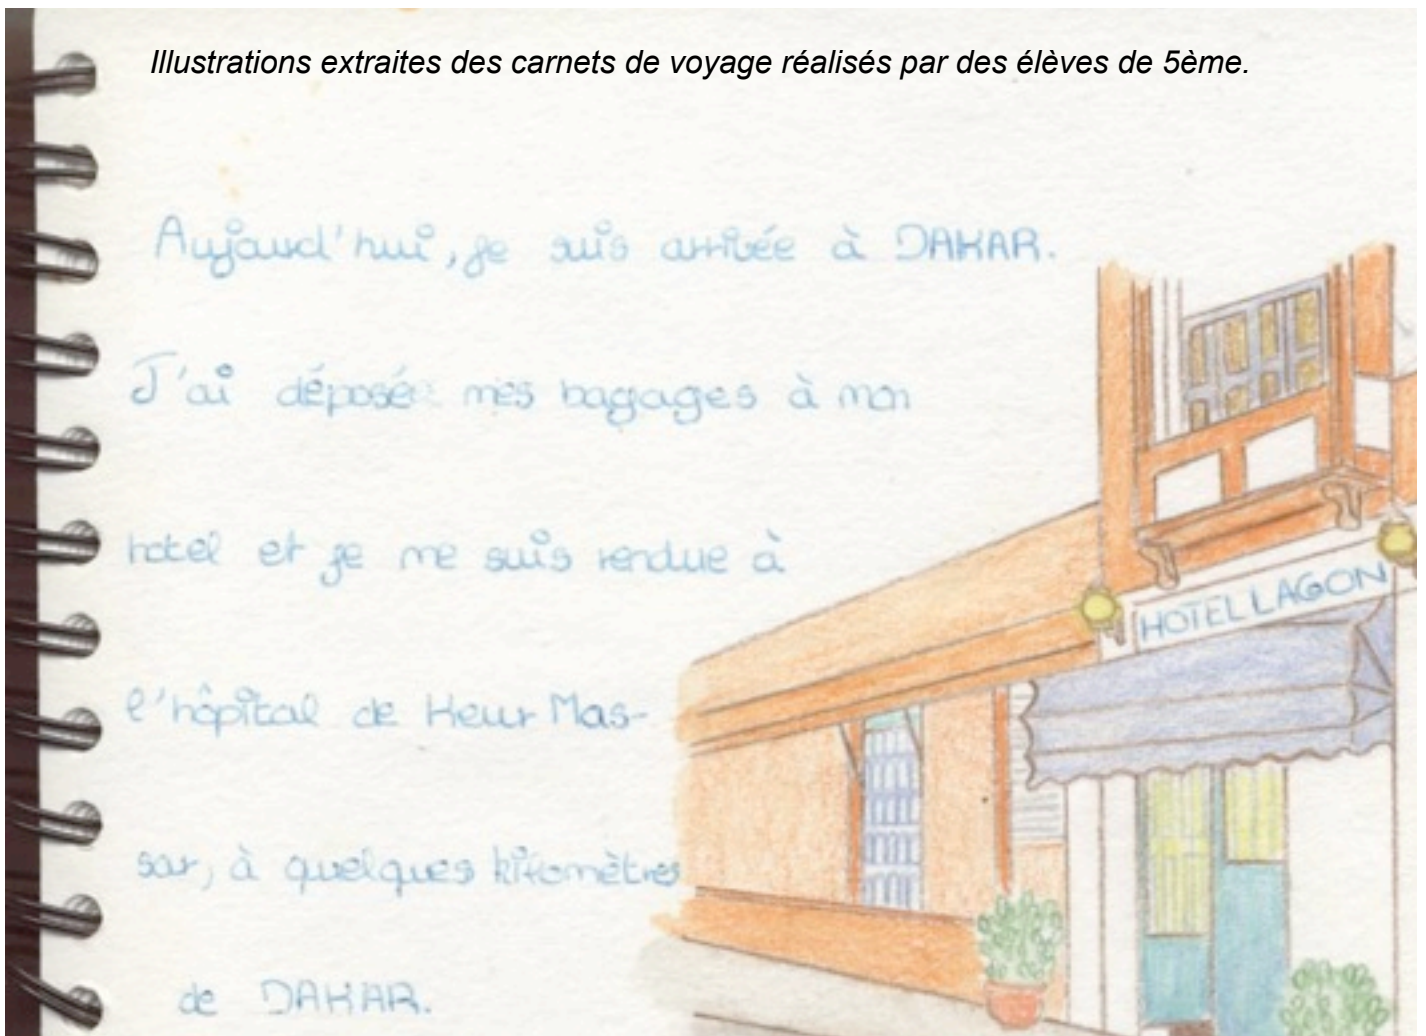 Illustrations extraites des carnets de voyage réalisés par des élèves de 5ème.
Aujourd'hui, je suis arrivée à DAKAR.
J'ai déposé mes bagages à mon
hotel et je me suis rendue à
l'hôpital de Keur Mas-
sar, à quelques kilomètres
de DAKAR.
HOTEL LAGON